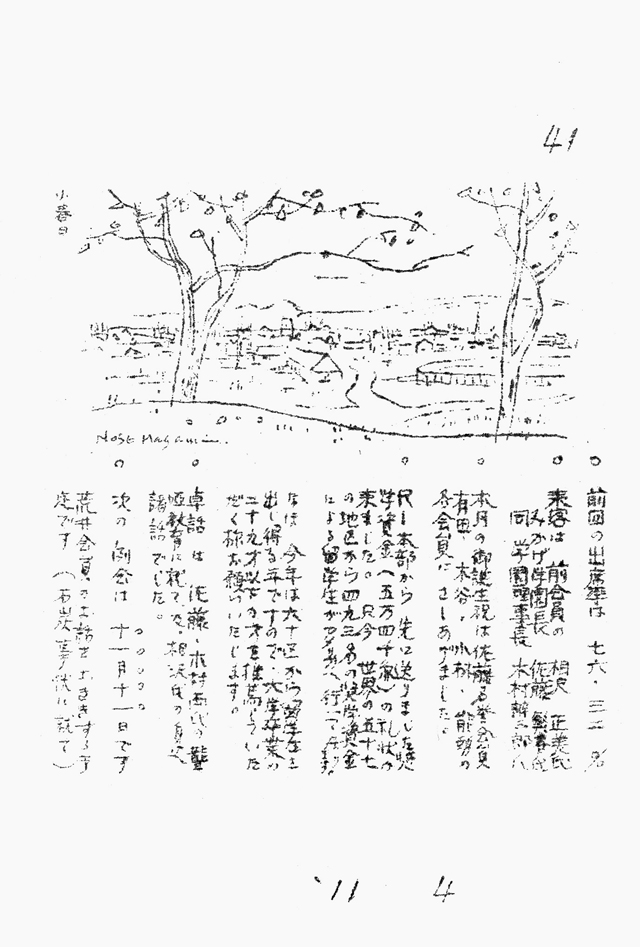 41
小春日
前回の出席率は 七六・三
来客は 前会員の 相沢 正美氏
みかげ学園長 佐藤
同 学園理事長 木村
本月の御誕生祝は佐藤名誉会員
有田、木谷、小林、能勢の
各会員にさしあげました。
R―本部から先に送りました
学資金(五万四千
来ました。只今 世界の五十七
の地区から四九三名の奨学資金
による留学生が 行って
なほ 今年は六十区から留学生を
出し得る年ですので、大学卒業の
二十九才以下の方を推薦していた
だく様お願いいたします。
卓話は 佐藤・木村両氏の聾
唖教育に就てと、相沢氏の
諸話でした。
次の例会は 十一月十一日です
荒井会員のお話をおききする予
定です(石炭 に就て)
'11 4